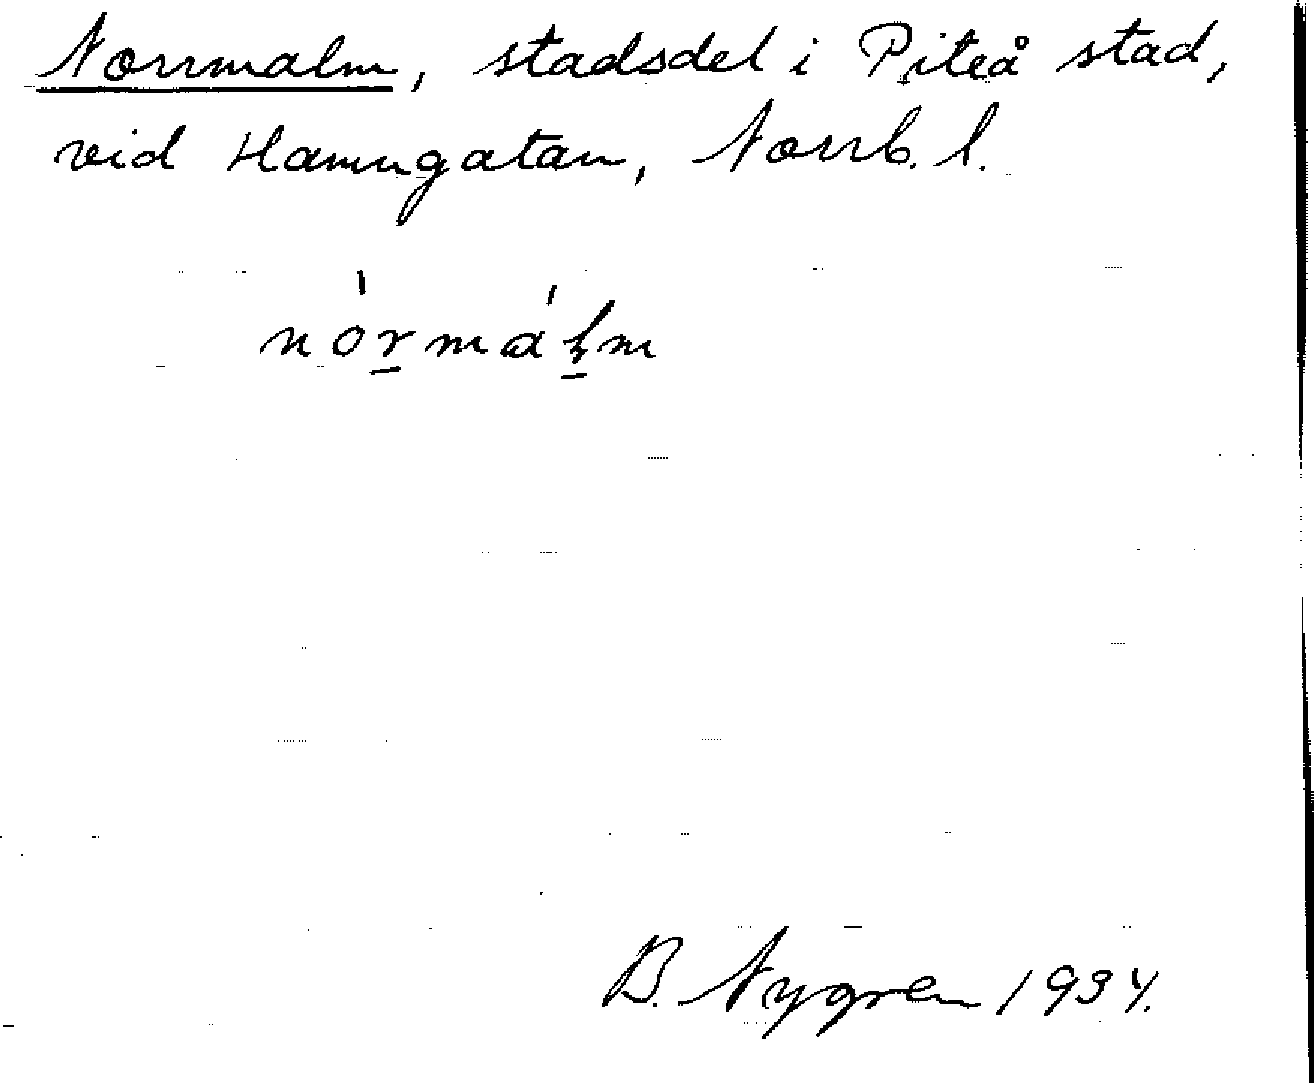 Norrmalm, stadsdel i Piteå stad,
vid Hamngatan, Norrb. l.
nórmálm
B. Nygren 1934.